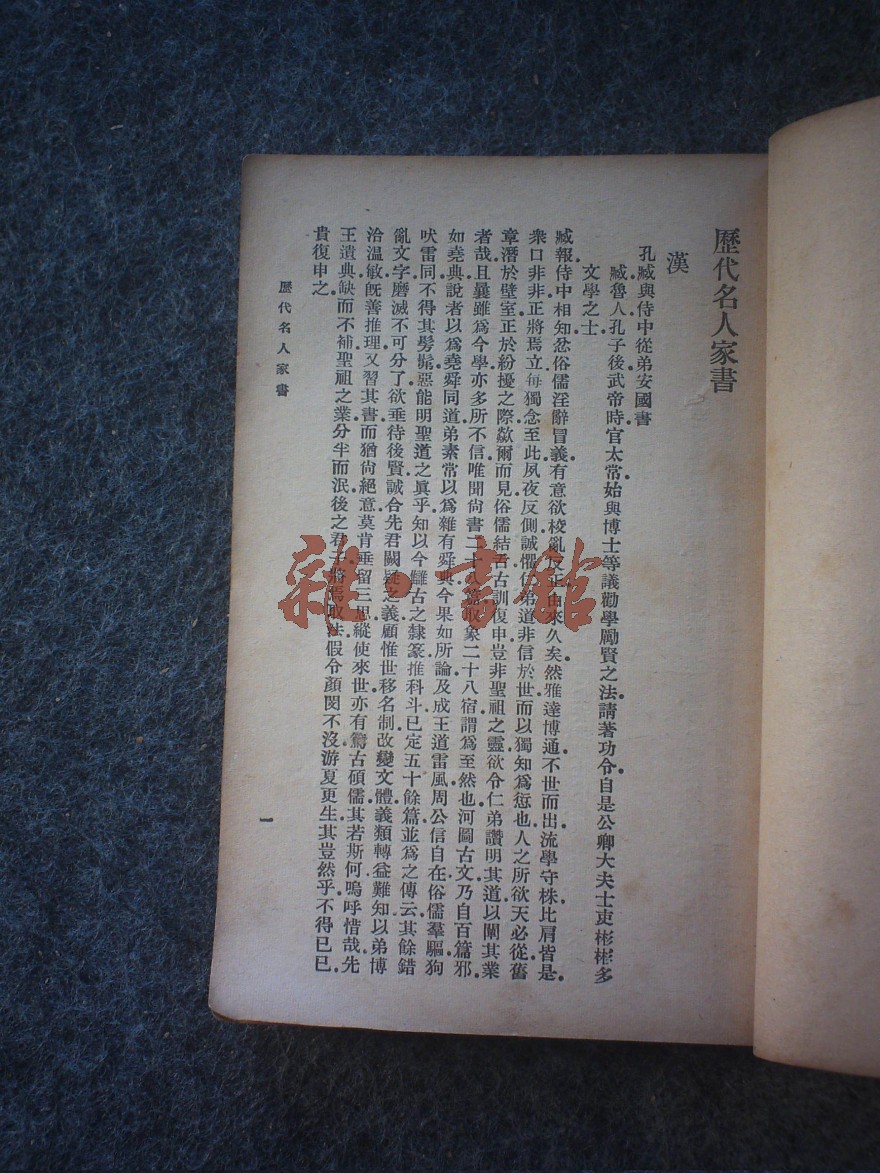 歷代名人家書
漢
孔臧與侍中從弟安國書
臧魯人孔子後武帝時官太常始與博士等議勸學勵賢之法請著功令自是公卿大夫士吏彬彬多
文學之士
臧報侍中相知忿俗儒淫辭冒義有意欲校亂反正由來久矣然雅達博通不世而出流學守株比肩皆是
衆口非非正將焉立每獨念至此夙夜反側誠懼仁弟道非信於世而以獨知為愆也人之所欲天必從舊
章潛於壁室正於紛擾之際歘爾而見俗儒結舌古訓復申豈非聖祖之靈欲令仁弟讚明其道以闡其業
者哉且曩雖為今學亦多所不信唯聞尚書二十八篇取象二十八宿謂為至然也河圖古文乃自百篇邪
如堯典說者以為堯舜同道弟素常以為雜有舜典今果如所論及成王道雷風周公信自在俗儒羣驅狗
吠雷同不得其髣髴惡能明聖道之眞乎知以今讎古之隸篆推科斗已定五十餘篇並為之傳云其餘錯
亂文字磨滅不可分了欲垂待後賢誠合先君闕疑之義顧惟世移名制改變文體義類轉益難知以弟博
洽溫敏旣善推理又習其書而猶尚絕意莫肯垂留三思縱使來世亦有篤古碩儒其若斯何嗚呼惜哉先
王遺典缺而不補聖祖之業分半而泯後之君子將焉取法假令顏閔不沒游夏更生其豈然乎不得已已
貴復申之
歷代名人家書
一
雜·書館